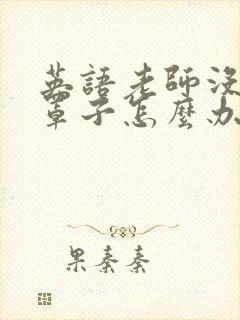 英語老師沒
罩子怎麼办
果秦秦